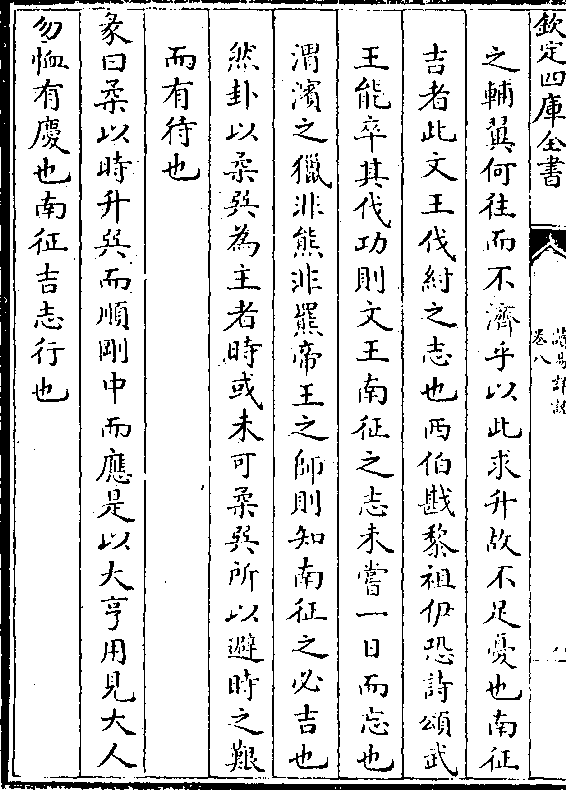 欽定四庫全書
卷八
讀易詳說
之輔翼何往而不濟乎以此求升故不足憂也南征
吉者此文王伐紂之志也西伯戡黎祖伊恐詩頌武
王能卒其伐功則文王南征之志未嘗一日而忘也
渭濱之獵非熊非羆帝王之師則知南征之必吉也
然卦以柔巽為主者時或未可柔巽所以避時之艱
而有待也
彖曰柔以時升巽而順剛中而應是以大亨用見大人
勿恤有慶也南征吉志行也